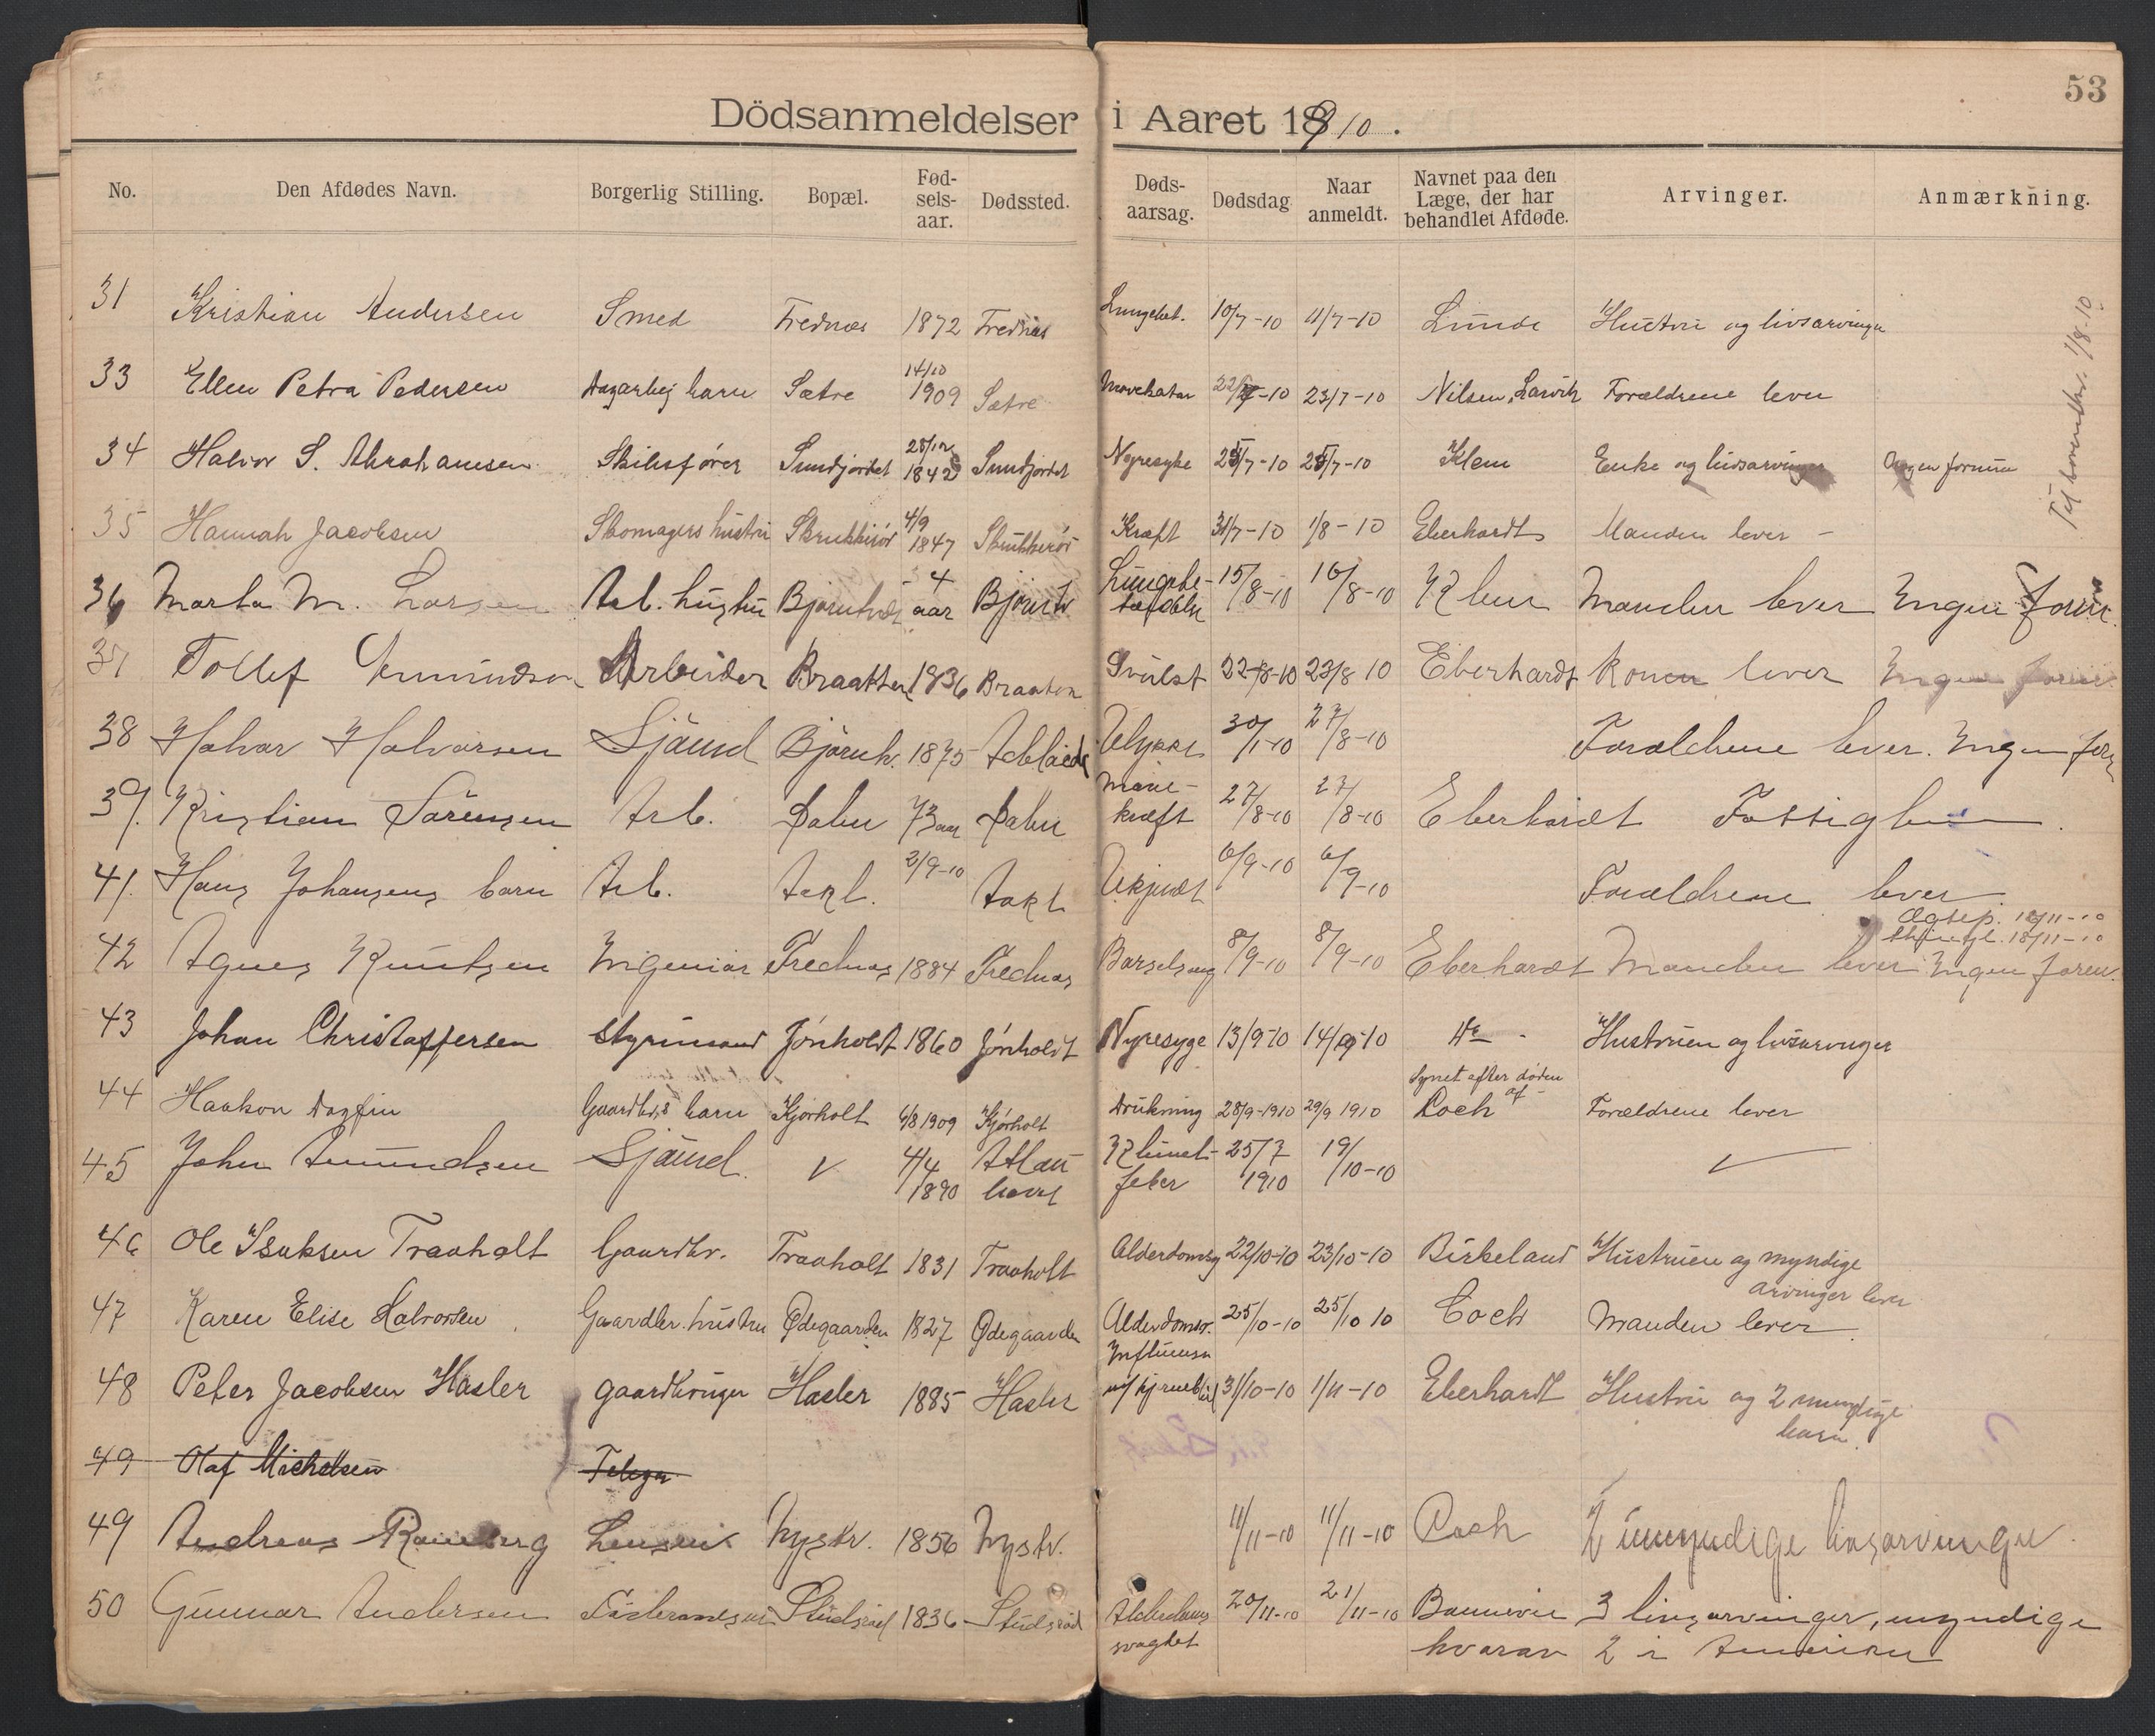 53
Dödsanmeldelser i Aaret 1910.
No. Den Afdødes Navn. Borgerlig Stilling. Bopæl. Fødselsaar. Dødssted. Dødsaarsag. Dødsdag Naar anmeldt. Navnet paa den Læge, der har behandlet Afdøde. Arvinger. Anmærkning.
31 Kristian Andersen Smed Frednæs 1872 Frednæs 10/7-10 11/7-10 Lunde Hustru og livsarvinger
33 Ellen Petra Pedersen Dagarbej barn Sætre 14/10 1909 Sætre Mavekatar 22/7-10 23/7-10 Nilsen, Larvik Forældrene lever
34 Halvor S. Abrahamsen Skibsfører Sundjordet 28/12 1842 Sundjordet Nyresyke 25/7-10 25/7-10 Klem Enke og livsarvinger Ingen formue
35 Hannah Jacobsen Skomagers hustru Skrukkerør 4/9 1847 Skrukkerør Kræft 31/7-10 1/8-10 Eberhardt Manden lever -
Til 1/8-10
36 Marta M. Larsen Arb. hustru 4 aar Lungebe- 15/8-10 16/8-10 Klem Manden lever Ingen form.
37 Tollef Amundsen Arbeider Braatten 1836 Braaten Svulst 22-/8-10 23/8 10 Eberhardt Konen lever Ingen form
38 Halvor Halvorsen Sjömd Björntv. 1875 Adelaide Ulykke 30/1-10 27/8-10 Forældrene lever. Ingen form
39. Kristian Sörensen Arb. Dalen 73 aar Dalen Mave-kræft 27/8-10 27/8-10 Eberhardt Fattiglem.
41. Hans Johansens barn Arb. Aakl. 2/9-10 Aakl 6/9-10 6/9-10 Forældrene lever.
42 Agnes Knutsen Ingeniör Frednæs 1884 Frednæs Barselseng 8/9-10 8/9-10 Eberhardt Manden lever Ingen formu.
18/11-10
18/11-10
43 Johan Christoffersen Styrmand Jønholdt 1860 Jønholdt Nyresyge 13/9-10 14/9-10 Do - Hustruen og livsarvinger
44 Haakon Dagfin Gaardbr.s barn Kjørholt 6/8 1909 Kjørholt Drukning 28/9-1910 29/9 1910 Synet efter døden af - Coch Forældrene lever
45 John Amundsen Sjömd. 4/4 1890 Atlanhavet Klimat-feber 25/7 1910 19/10-10
46 Ole Isaksen Traaholt Gaardbr. Traaholt 1831 Traaholt Alderdomsv 22/10-10 23/10-10 Birkeland Hustruen og myndige arvinger lever
47 Karen Elise Halvorsen Gaardbr. hustru Ødegaarden 1827 Ødegaarden Alderdomsv. 25/10-10 25/10 10 Coch Manden lever.
48 Peter Jacobsen Hasler gaardbruger Hasler 1885 Hasler Influensa 31/10-10 1/11-10 Eberhardt Hustru og 2 barn.
49 Olaf Michelsen
49 Andreas Ramberg Lensm. Nystr. 1856 Nystr. 11/11-10 11/11-10 Coch 2 umyndige livsarvinger.
50 Gunnar Andersen Føderaadsm Studsrød 1836 Studsrød Alderdomssvaghet 20/11-10 21/11-10 Bonnevie 3 livsarvinger, myndige hvorav 2 i Amerika